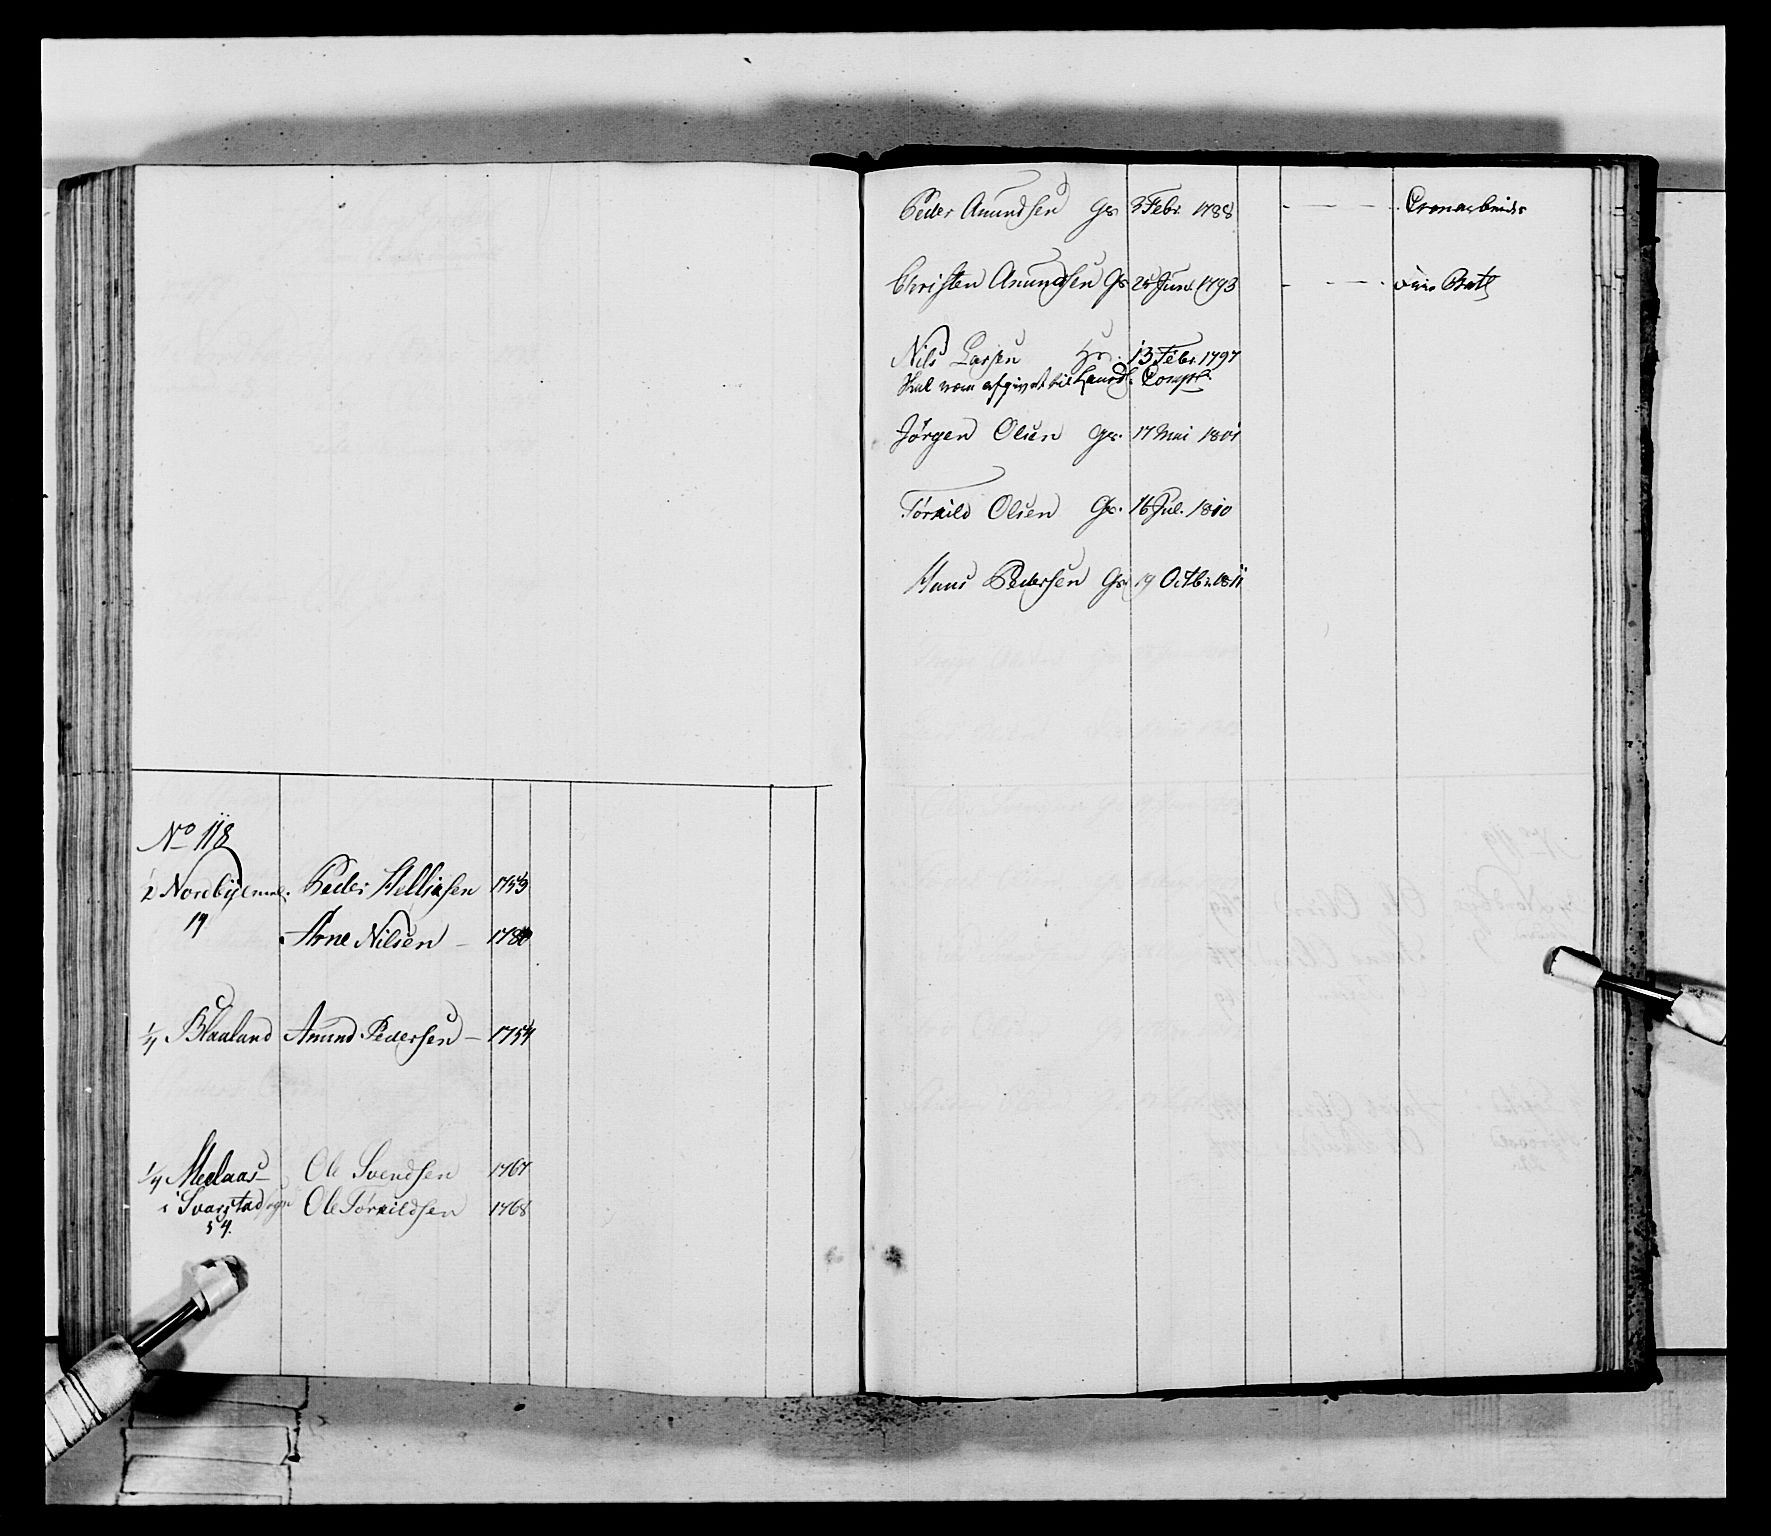 No 118
1/2 Nordbyemel.
19
Peder Helljesen 1753
Arne Nilsen – 1780
1/4 Blaaland Amund Pedersen – 1754
1/4 Medaas Ole Svendsen 1767
i Svarstad sogn Ole Torkildsen 1768
54.
Peder Amundsen Gs. 3 Febr. 1788 - — - Cronarbeider
Christen Amundsen Gs. 25 Jun. 1793 - - — -
Nils Larsen 13 Febr. 1797
skal være afgivet til Landv. Comp.
Jørgen Olsen Gs. 17 Mai 1801
Torkild Olsen Gs. 16 Jul. 1810
Hans Pedersen Gs. 19 Octbr. 1811